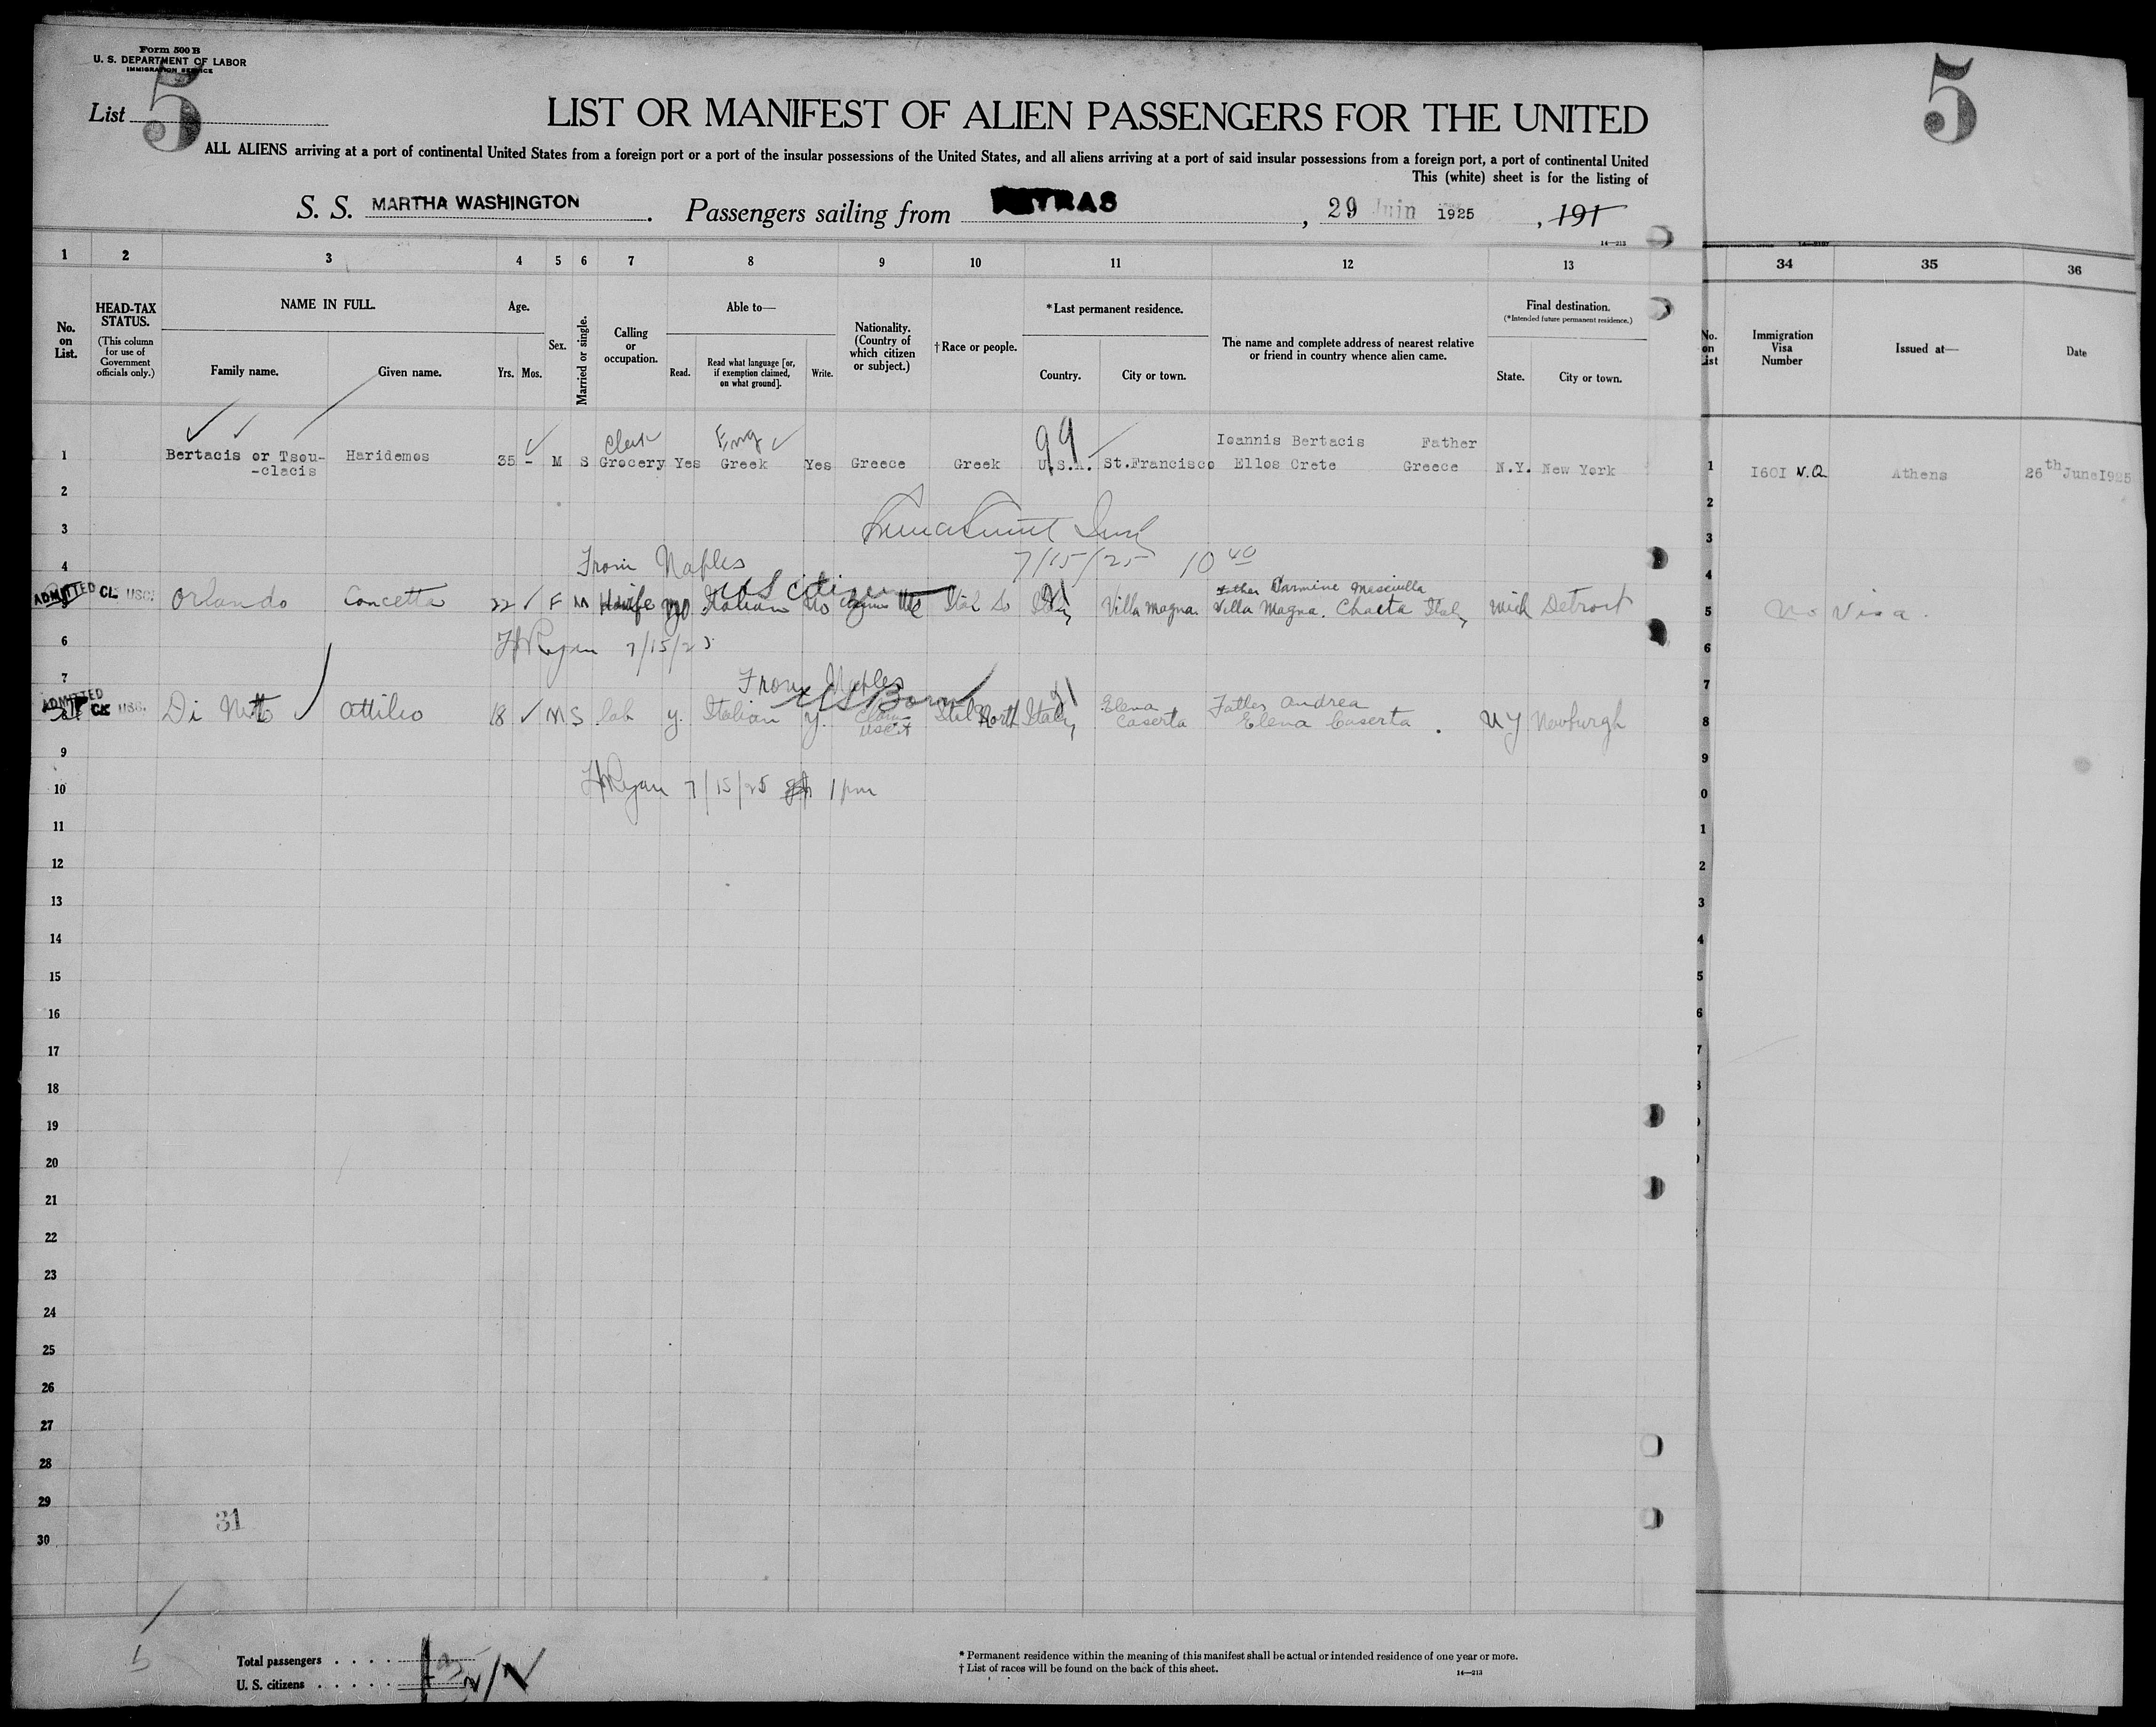 Form 500 B
U. S. DEPARTMENT OF LABOR
IMMIGRATION SERVICE
List 5
5
LIST OR MANIFEST OF ALIEN PASSENGERS FOR THE UNITED
ALL ALIENS arriving at a port of continental United States from a foreign port or a port of the insular possessions of the United States, and all aliens arriving at a port of said insular possessions from a foreign port, a port of continental United
This (white) sheet is for the listing of
S. S. MARTHA WASHINGTON. Passengers sailing from TRAS, 29 Juin 1925, 191
14—213
1 2 3 4 5 6 7 8 9 10 11 12 13 34 35 36
No. on List.
HEAD-TAX STATUS.
(This column for use of Government officials only.)
NAME IN FULL.
Family name. Given name.
Age.
Yrs. Mos.
Sex.
Married or single.
Calling or occupation.
Able to—
Read. Read what language [or, if exemption claimed, on what ground]. Write.
Nationality. (Country of which citizen or subject.)
† Race or people.
*Last permanent residence.
Country. City or town.
The name and complete address of nearest relative or friend in country whence alien came.
Final destination.
(*Intended future permanent residence.)
State. City or town.
No. on List
Immigration Visa Number
Issued at—
Date
Clerk Eng 99 Ioannis Bertacis Father
1 Bertacis or Tsou- Haridemos 35 - M S Grocery Yes Greek Yes Greece Greek U.S.A. St.Francisco Ellos Crete Greece N.Y. New York 1 1601 N.Q. Athens 26th June 1925
-clacis
2 2
3 3
7/15/25 10 40
4 From Naples 4
US citizen
ADMITTED CL USC. Orlando Concetta 22 F M Hwife no Italian no Ital So Italy Villa Magna. Villa Magna. Chaeta Italy Mich Detroit 5 No Visa.
6 HRyan 7/15/25 6
7 From Naples 7
US Born
ADMITTED CK USC. Di Nitto Attilio 18 M S lab y. Italian y. Claims USC Ital North Italy Elena Caserta Father Andrea Elena Caserta. NY Newburgh 8
9 9
10 HRyan 7/15/25 1 pm 0
11 1
12 2
13 3
14 4
15 5
16 6
17 7
18
19
20
21
22
23
24
25
26
27
28
29
31
30
5
Total passengers . . . .
U. S. citizens . . . . .
* Permanent residence within the meaning of this manifest shall be actual or intended residence of one year or more.
† List of races will be found on the back of this sheet.
14—213